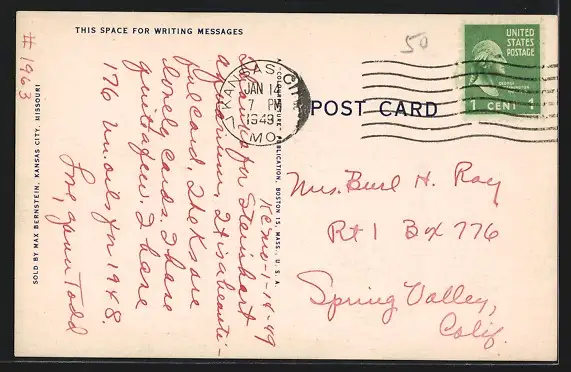 THIS SPACE FOR WRITING MESSAGES
# 1963
SOLD BY MAX BERNSTEIN, KANSAS CITY, MISSOURI
K.C. Mo-1-14-49
Thanks for Steinhart
aquarium, It is a beauti-
ful card, Thks are
lovely cards. I have
quite a few. I have
176 un. oils for 1948.
Love, Todd
PUBLICATION, BOSTON 15, MASS., U. S. A.
KANSAS CITY
JAN 14
7 PM
1949
MO.
POST CARD
50
UNITED
STATES
POSTAGE
1 CENT 1
Mrs. Burl H. Ray
Rt 1 Box 776
Spring Valley,
Calif.